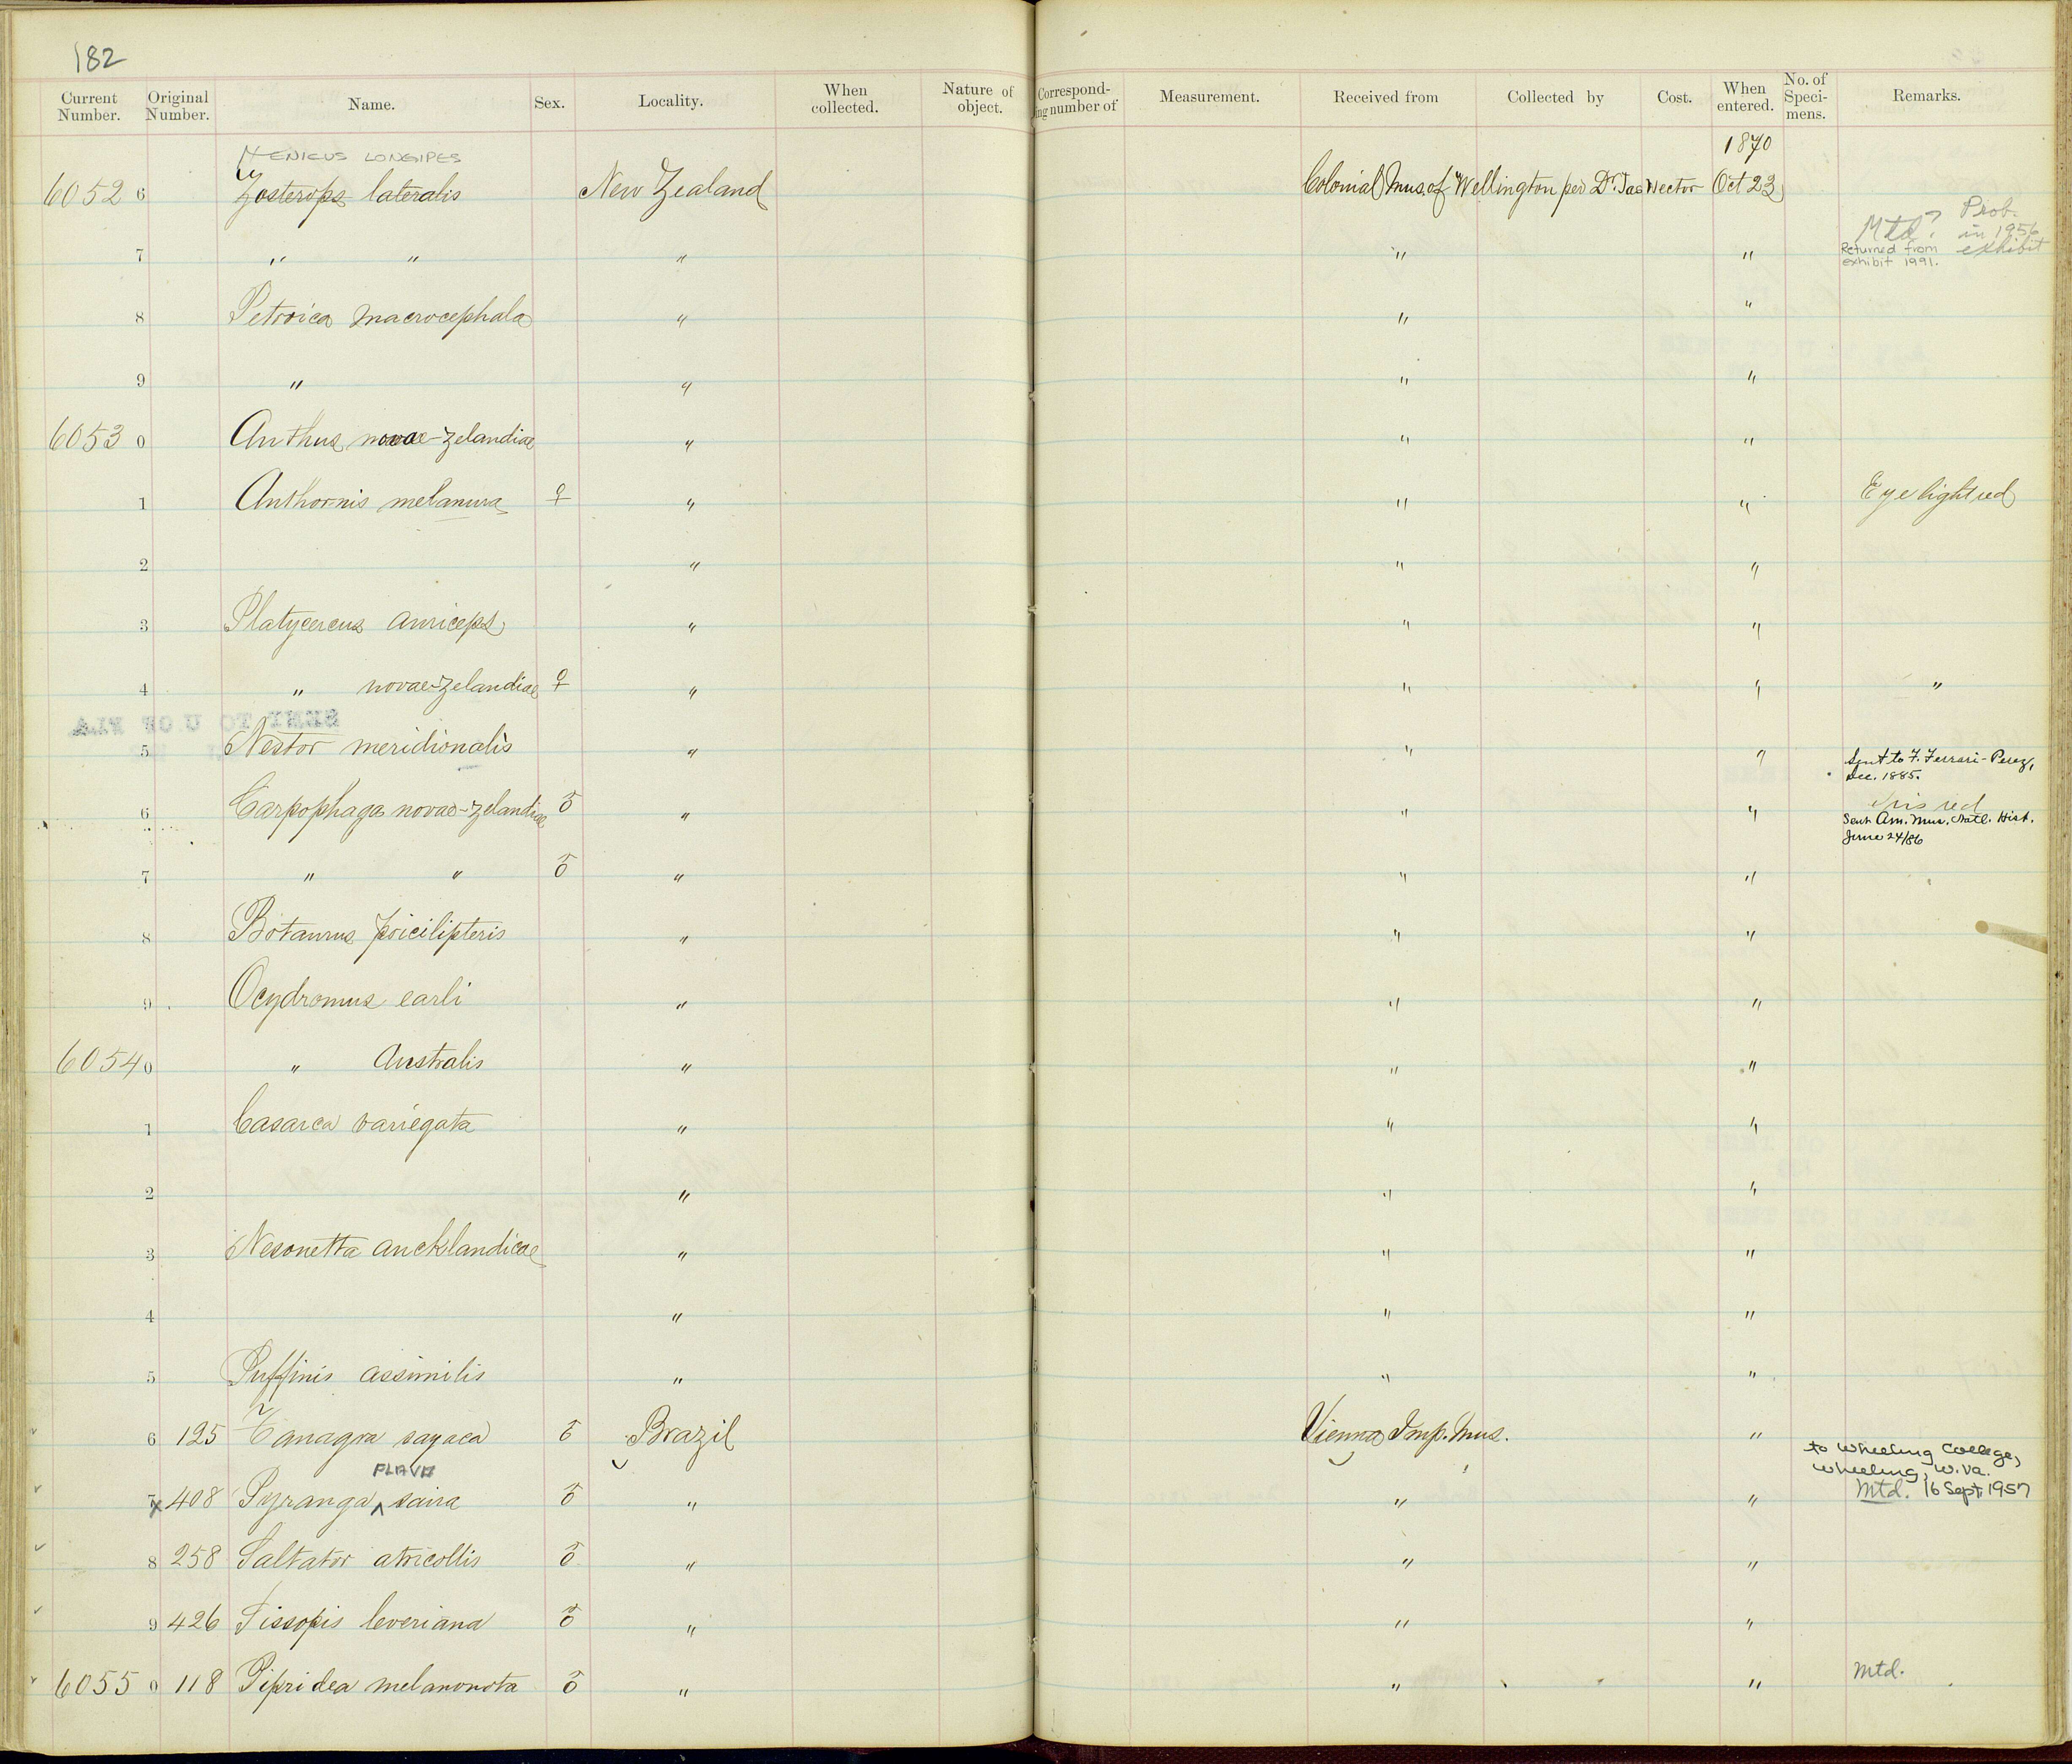 182
Current Number. Original Number. Name. Sex. Locality. When collected. Nature of object. Correspond- ing number of Measurement. Received from Collected by Cost. When entered. No. of Speci- mens. Remarks.
1870
XENICUS LONGIPES
6052 6 Zosterops lateralis New Zealand Colonial Mus. of Wellington per Dr. Jas Hector Oct 23
7 " " " " " Mtd? Prob. in 1956 exhibit
Returned from exhibit 1991.
8 Petroica macrocephala " " "
9 " " " "
6053 0 Anthus novae-zelandiae " " "
1 Anthornis melanura ♀ " " " Eye light red
2 " " "
3 Platycercus auriceps " " "
4 " novae-zelandiae ♀ " " " "
SENT TO U OF FLA
5 Nestor meridionalis " " " Sent to F. Ferrari-Perez,
Dec. 1885.
6 Carpophaga novae-zelandiae ♂ " " " Iris red
Sent Am. Mus. Natl. Hist.
June 24/86
7 " " ♂ " " "
8 Botaurus poicilipteris " " "
9 Ocydromus earli " " "
6054 0 " Australis " " "
1 Casarca variegata " " "
2 " " "
3 Nesonetta aucklandicae " " "
4 " " "
5 Puffinis assimilis " " "
6 125 Tanagra sayaca ♂ Brazil Vienna Imp. Mus. "
FLAVA
7 408 Pyranga ^ saira ♂ " " " to Wheeling College,
Wheeling, W. Va.
Mtd. 16 Sept 1957
8 258 Saltator atricollis ♂ " " "
9 426 Cissopis leveriana ♂ " " "
6055 0 118 Pipridea melanonota ♂ " " " Mtd.